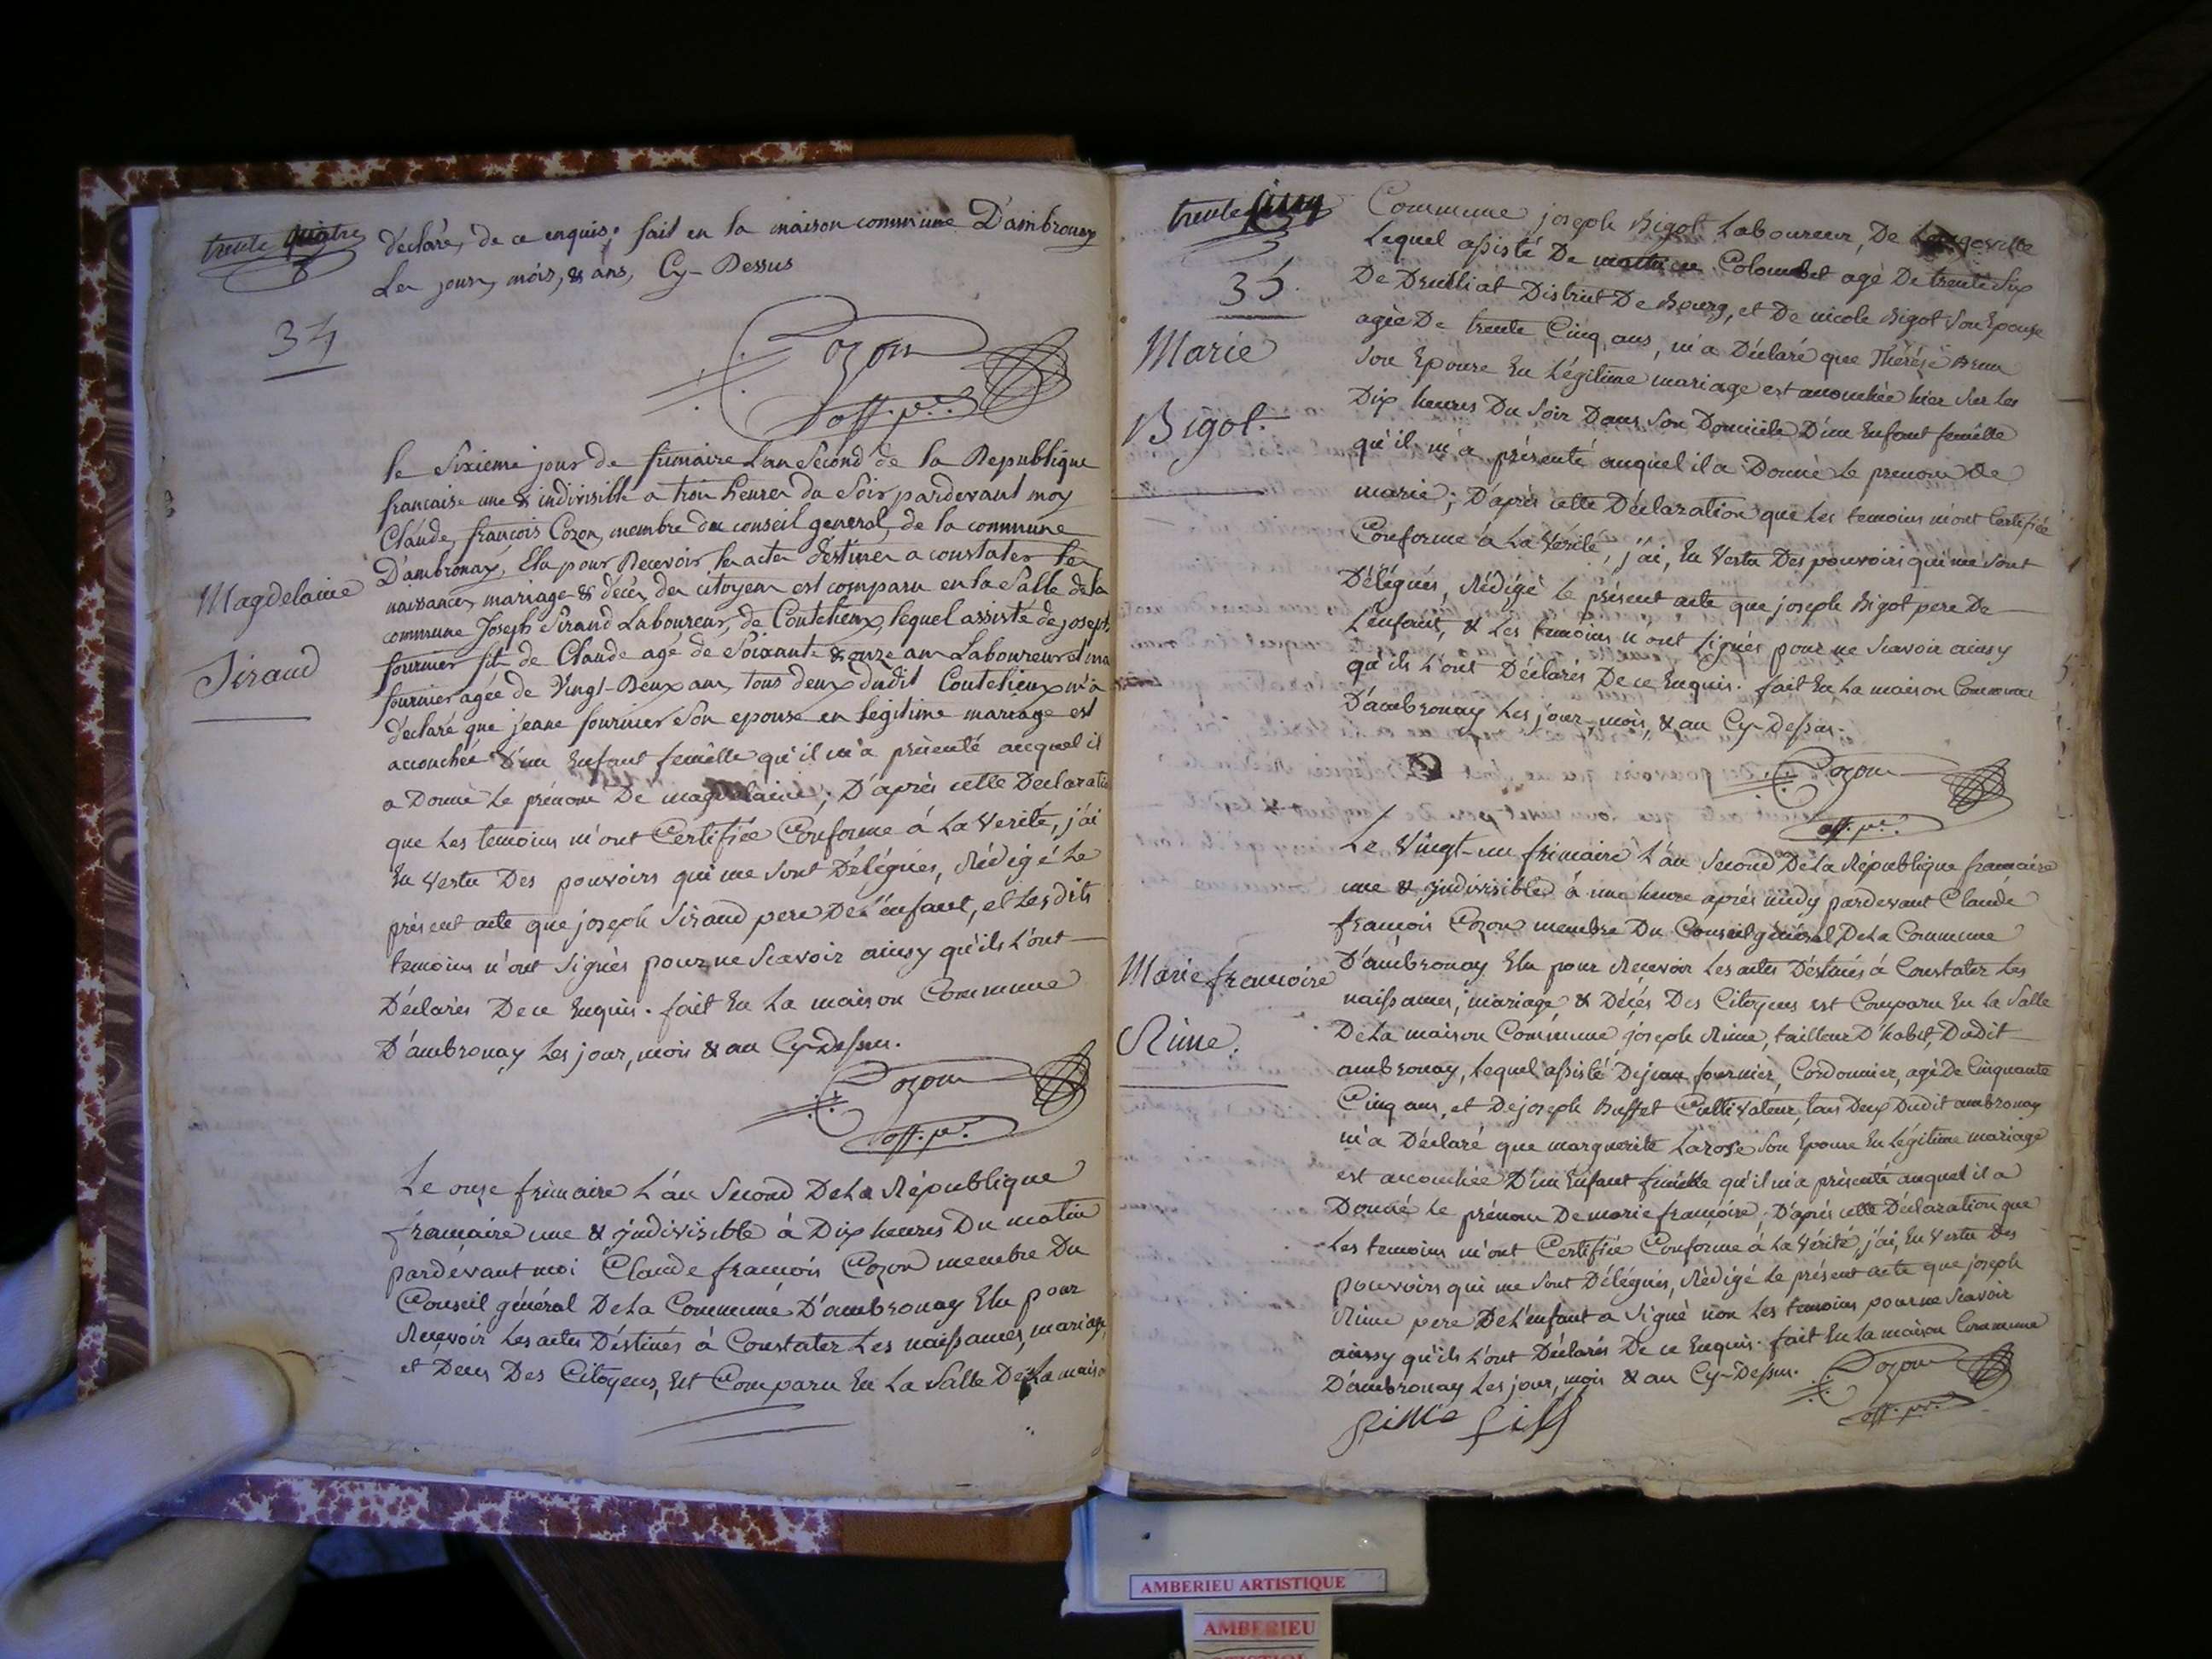 trente quatre
34
déclaré, de ce enquis. fait en la maison commune D'ambronay
Les jour, mois, & ans, Cy-Dessus
Cozon
off. p.
Magdelaine
Siraud
le Sixieme jour de frimaire L'an Second de la Republique
francaise une & indivisible a trois heures du Soir pardevant moy
Claude, françois Cozon, membre du conseil general, de la commune
D'ambronay, Elu pour Recevoir les actes destines a constater les
naissances, mariage & décès des citoyens est comparu en la Salle de la
commune Joseph Siraud Laboureur, de Coutelieux, lequel assisté de joseph
fournier fils de Claude agé de Soixante & onze ans Laboureur et
fournier agée de Vingt-Deux ans, tous deux dudit Coutelieux m'a
déclaré que jeane fournier Son epouse en legitime mariage est
accouchée d'un Enfant femelle qu'il m'a présenté auquel il
a Donné Le prénom De magdelaine; D'après cette Declaration
que Les temoins m'ont Certifiée Conforme à La Verité, j'ai
En Vertu Des pouvoirs qui me Sont Délégués, Rédigé Le
présent acte que joseph Siraud pere De L'enfant, et Lesdits
temoins n'ont Signés pour ne Scavoir ainsy qu'ils L'ont
Déclarés De ce Enquis. fait En La maison Commune
D'ambronay Les jour, mois & an Cy-Dessus.
Cozon
off. p.
Le onze frimaire L'an Second De La République
francaise une & Indivisible à Dix heures Du matin
pardevant moi Claude francois Cozon membre Du
Conseil général De La Commune D'ambronay Elu pour
Recevoir Les actes Déstinés à Constater Les naissances, mariage,
et Deces Des Citoyens, Est Comparu En La Salle De La maison
trente cinq
35.
Marie
Bigot.
Commune joseph Bigot Laboureur, De
Lequel assisté De Colombet agé De trente Six
De Druilliat District De Bourg, et De nicole Bigot Son Epouse
agée De trente Cinq ans, m'a Déclaré que Thérése
Son Epouse En Légitime mariage est accouchée hier Sur Les
Dix heures Du Soir Dans Son Domicile D'un Enfant femelle
qu'il m'a présenté auquel il a Donné Le prenom De
marie; D'après cette Déclaration que Les temoins m'ont Certifiée
Conforme à La Vérité, j'ai, En Vertu Des pouvoirs qui me Sont
Délégués, Rédigé Le présent acte que joseph Bigot pere De
L'enfant, & Les temoins n'ont Signés pour ne Scavoir ainsy
qu'ils L'ont Déclarés De ce Enquis. fait En La maison Commune
D'ambronay Les jour, mois, & an Cy-Dessus.
Cozon
off. p.
Marie francoise
Rime.
Le Vingt-un frimaire L'an Second De La République francaise
une & Indivisible à une heure après midy pardevant Claude
francois Cozon membre Du Conseil général De La Commune
D'ambronay Elu pour Recevoir Les actes Déstinés à Constater Les
naissances, mariage & Décés Des Citoyens est Comparu En La Salle
De La maison Commune joseph Rime, tailleur D'habit, Dudit
ambronay, Lequel assisté De jean fournier, Cordonnier, agé De Cinquante
Cinq ans, et De joseph Buffet Cultivateur, tous Deux Dudit ambronay
m'a Déclaré que marguerite Larose Son Epouse En Légitime mariage
est accouchée D'un Enfant femelle qu'il m'a présenté auquel il a
Donné Le prénom De marie francoise, D'après cette Déclaration que
Les temoins m'ont Certifiée Conforme à La Vérité, j'ai, En Vertu Des
pouvoirs qui me Sont Délégués, Rédigé Le présent acte que joseph
Rime pere De L'enfant a Signé non Les temoins, pour ne Scavoir
ainsy qu'ils L'ont Déclarés De ce Enquis. fait En La maison Commune
D'ambronay Les jour, mois & an Cy-Dessus.
Cozon
off. p.
AMBERIEU ARTISTIQUE
AMBERIEU